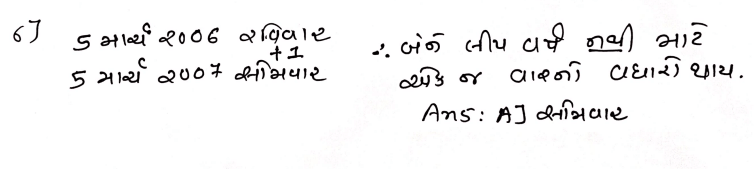 6] 5 માર્ચ 2006 રવિવાર
+1
5 માર્ચ 2007 સોમવાર
∴ બંને લીપ વર્ષ નથી માટે
એક જ વારનો વધારો થાય.
Ans: A] સોમવાર